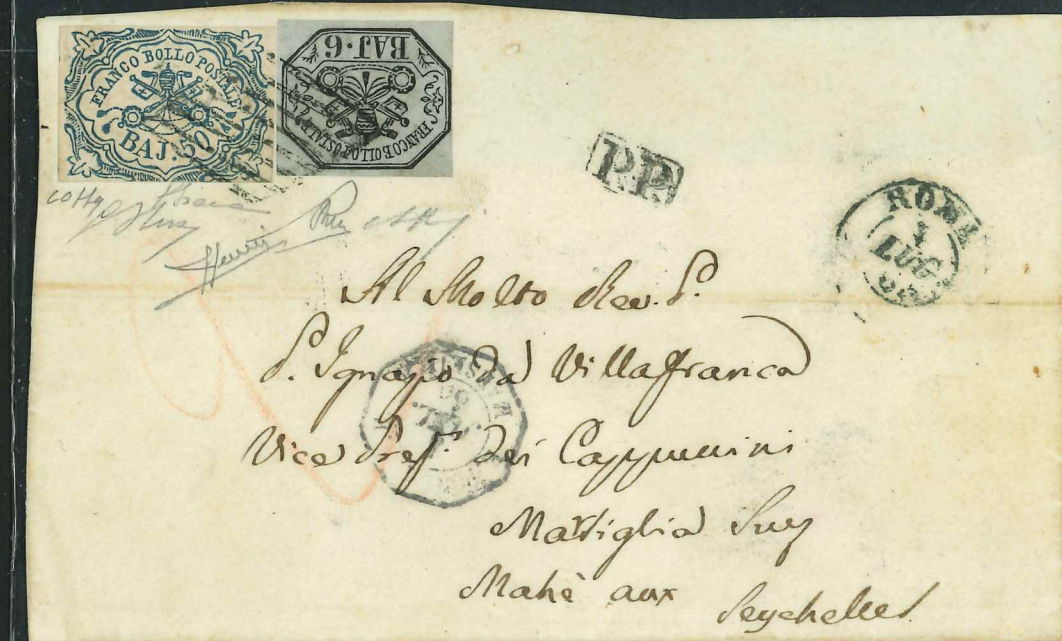 FRANCO BOLLO POSTALE
BAJ. 50
BAJ. 6
FRANCO BOLLO POSTALE
P.P.
ROMA
1
LUG
Al Molto Rev. P.
P. Ignazio da Villafranca
Vice Pref. dei Cappuccini
Marsiglia Suez
Mahè aux
Seychelles